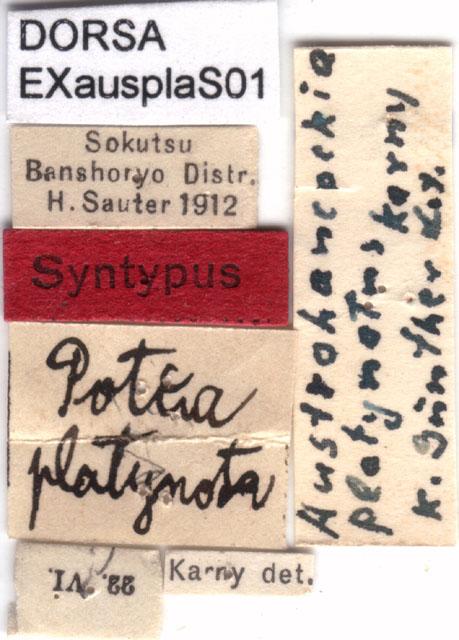 DORSA
EXausplaS01
Sokutsu
Banshoryo Distr.
H. Sauter 1912
Syntypus
Potua
platynota
22. VI.
Karny det.
Austrohancockia
platynotus Karny
K. Günther